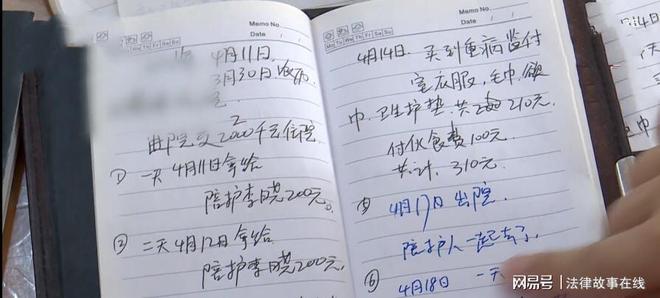 Memo No.
Date / /
Mo Tu We Th Fr Sa Su
4月11日.
3月30日
2
出院交2000千元住院
① 一天4月11日拿给
陪护李晓200元。
② 二天4月12日拿给
陪护李晓200元,
Memo No.
Date / /
Mo Tu We Th Fr Sa Su
4月14日. 买到重病监付
室衣服,毛巾,
巾.卫生护垫.共 210元.
付伙食费100元.
共计.310元.
4月17日 出院.
陪护人一起去了.
⑥ 4月18日 一天
网易号 | 法律故事在线